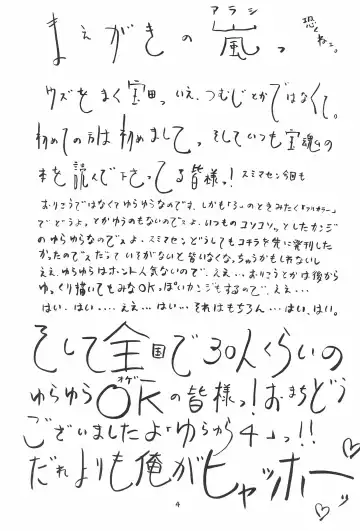 まえがきの嵐っ
アラシ
恐くねーっ。
ウズをまく宝田っ。いえ、つむじとかではなくて。
初めての方は初めまして。そしていつも宝魂の
本を読んで下さってる皆様っ!スミマセン今回も
おりこうではなくてゆらゆらなのです。しかも「3」のときみたく「フリカラー」
でどうよ。とかゆうのもないのでえよ。いつものコソコソッとしたカンジ
のゆらゆらなのでえよ。スミマセンどうしてもコチラを先に発刊した
かったのでえだっていそがないと皆いなくな、ちゃうかもしれないし
ええ、ゆらゆらはホント人気ないので、ええ…おりこうとかは後から
ゆっくり描いてもみなOKっぽいカンジもするので、ええ…
はい、はい…、ええ…はい…それはもちろん…はい、はい。
そして全国で30人くらいの
ゆらゆらOKの皆様っ!おまちどう
オゲー
ございましたよ「ゆらから4」っ!!
だれよりも俺がヒャッホーッ
4